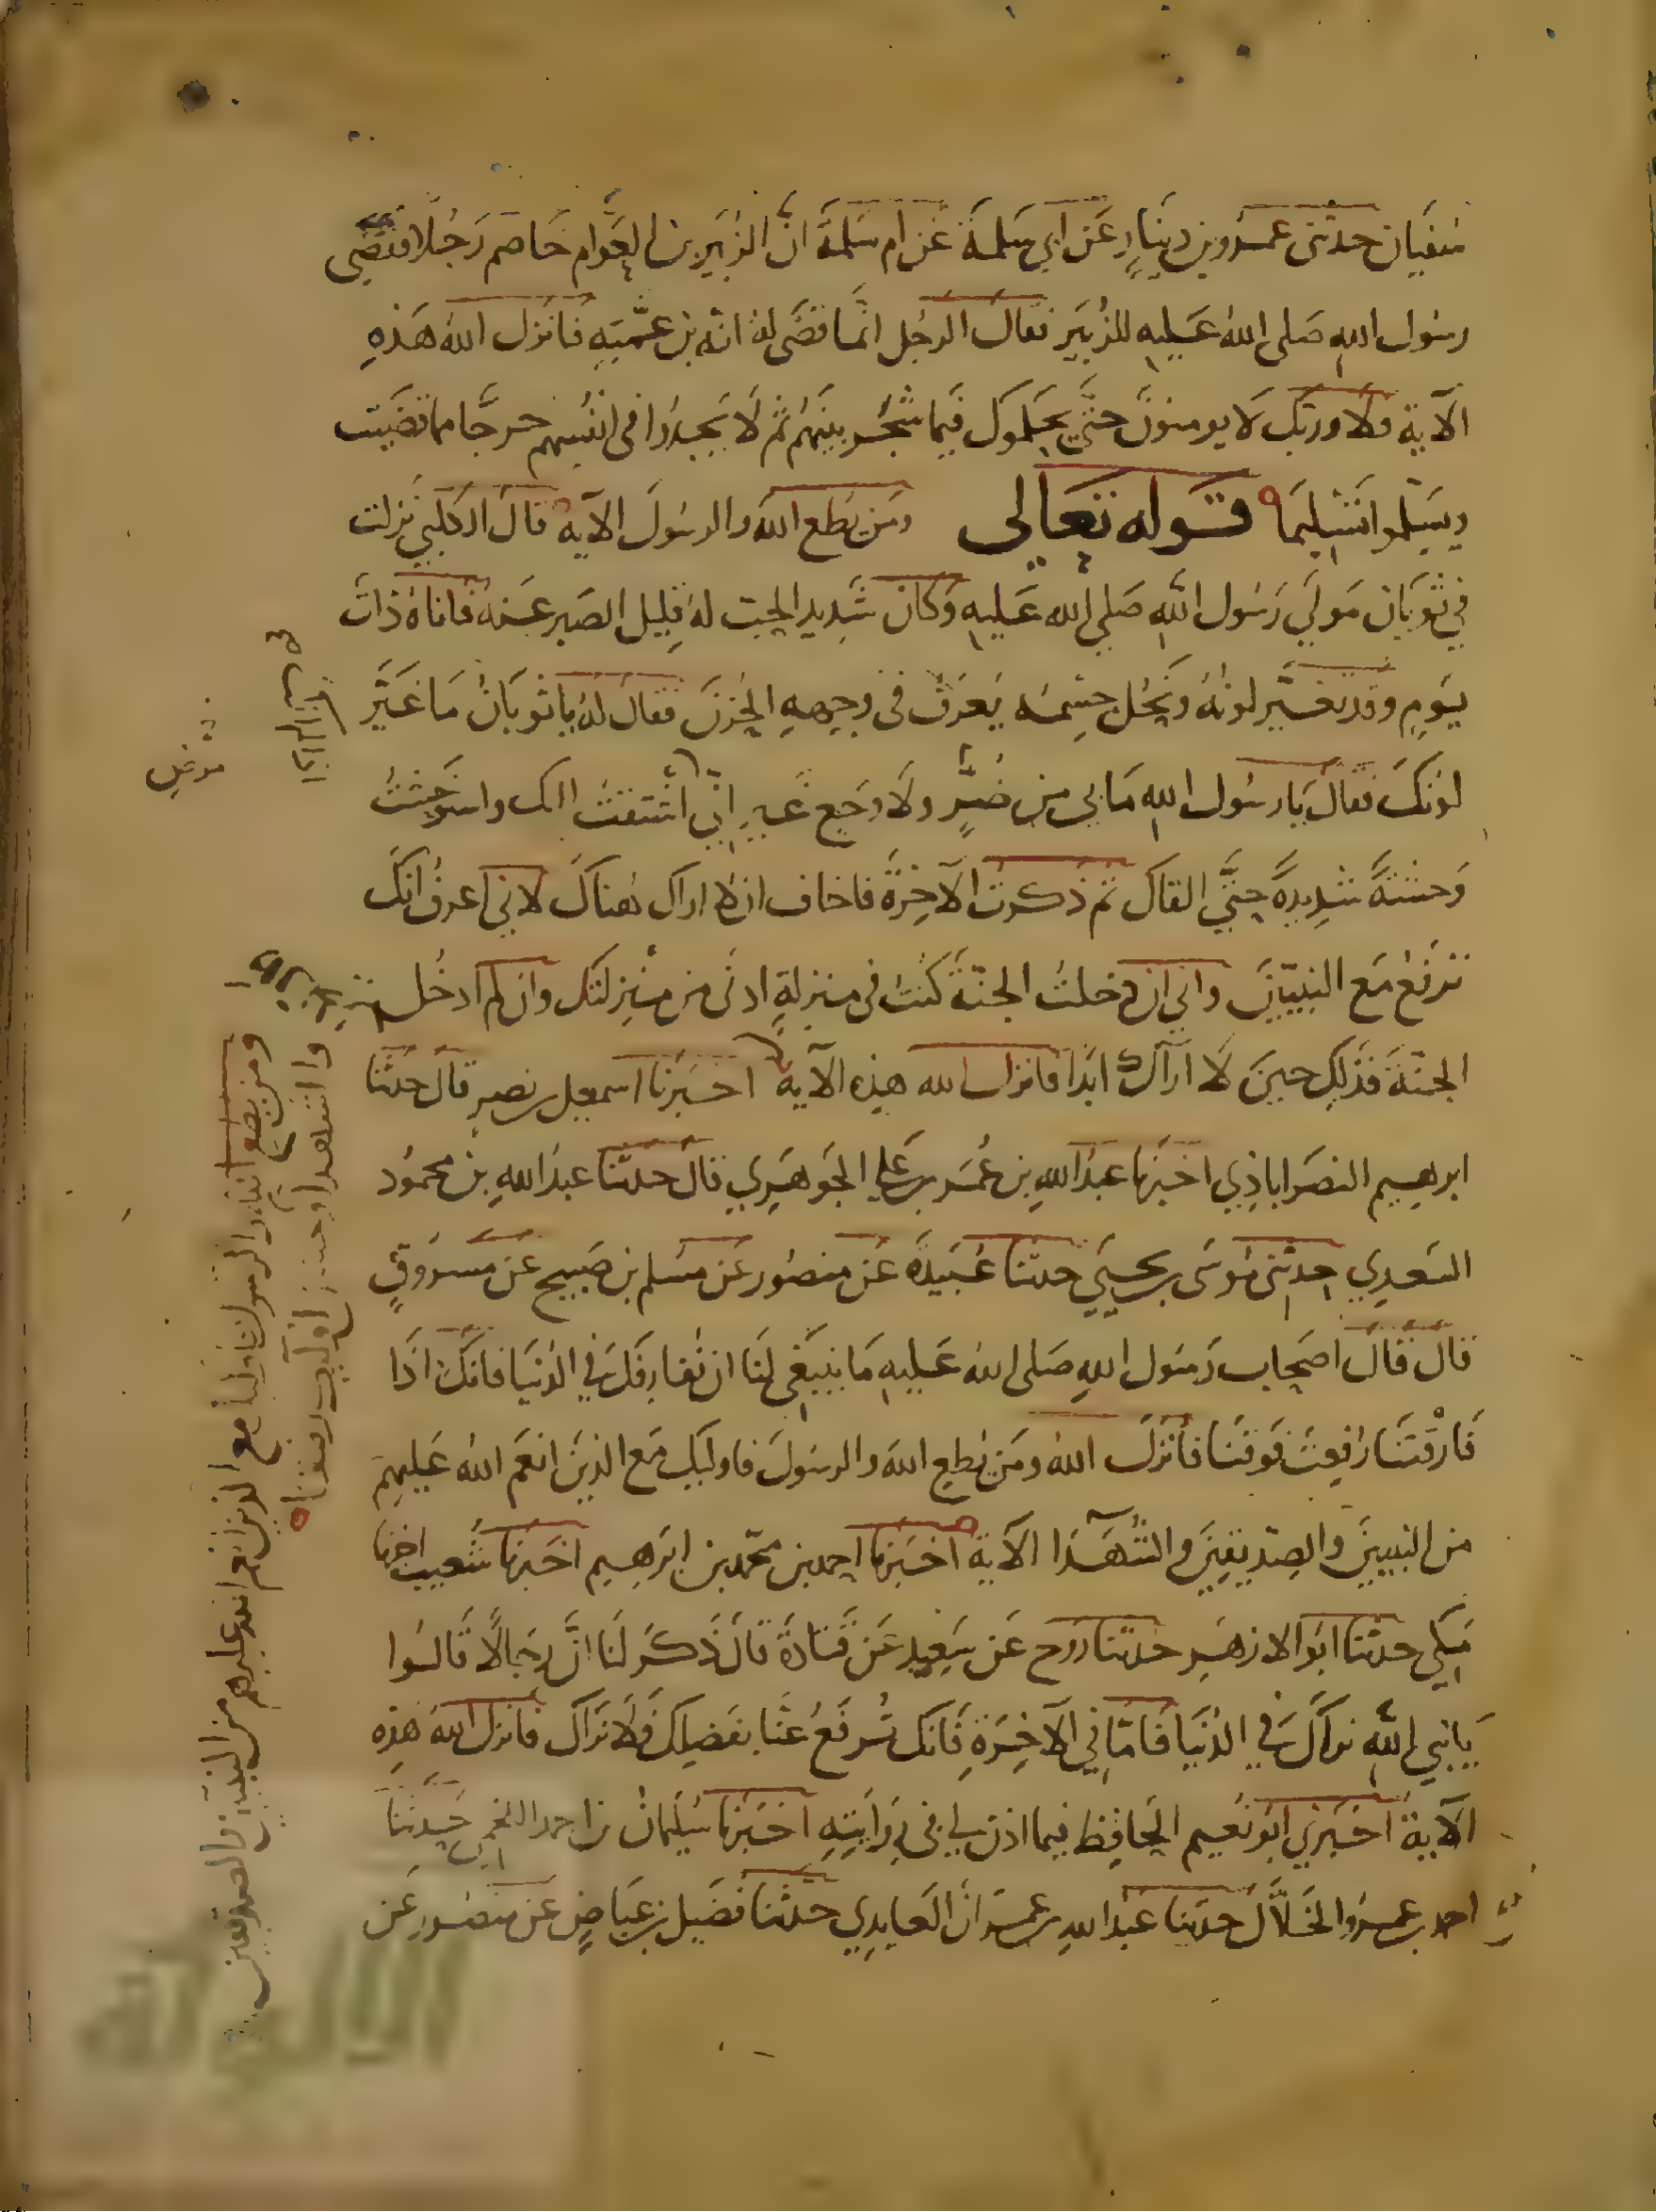 سفيان حدثنى عمرو بن دينار عن ابي سلمة عن ام سلمة انّ الزبير بن العوّام خاصم رجلا فقضى
رسول الله صلى الله عليه للزبير فقال الرجل انما قضى له انه بن عمّته فانزل الله هذه
الآية فلا وربك لا يومنون حتّى يحكموك فيما شجر بينهم ثم لا يجدوا في انفسهم حرجا مما قضيت
ويسلموا تسليما قوله تعالى ومن يطع الله والرسول الآية قال الكلبي نزلت
في ثوبان مولى رسول الله صلى الله عليه وكان شديد الحب له قليل الصبر عنه فاتاه ذات
يوم وقد تغيّر لونه ونحل جسمه يعرف في وجهه الحزن فقال له يا ثوبان ما غيّر
لونك فقال يا رسول الله ما بي من ضرّ ولا وجع غير اني اشتقت اليك واستوحشت
وحشة شديدة حتّى القاك ثم ذكرت الآخرة فاخاف ان لا اراك هناك لاني اعرف انك
ترفع مع النبيين واني ان دخلت الجنة كنت في منزلة ادنى من منزلتك وان لم ادخل
الجنة فذلك حين لا اراك ابدا فانزل الله هذه الآية اخبرنا اسمعيل بن نصير قال حدثنا
ابرهيم النصراباذي اخبرنا عبد الله بن عمر بن علي الجوهري قال حدثنا عبد الله بن محمود
السعدي حدثنى موسى بن يحيى حدثنا عبيدة عن منصور عن مسلم بن صبيح عن مسروق
قال قال اصحاب رسول الله صلى الله عليه ما ينبغي لنا ان نفارقك في الدنيا فانك اذا
فارقتنا رفعت فوقنا فانزل الله ومن يطع الله والرسول فاوليك مع الذين انعم الله عليهم
من النبيين والصديقين والشهدا الآية اخبرنا احمد بن محمد بن ابرهيم اخبرنا شعيب اخبرنا
مكي حدثنا ابو الازهر حدثنا روح عن سعيد عن قتادة قال ذكر لنا انّ رجالا قالوا
يا نبي الله نراك في الدنيا فامّا في الآخرة فانك ترفع عنا بفضلك فلا نراك فانزل الله هذه
الآية اخبرني ابو نعيم الحافظ فيما اذن لي في روايته اخبرنا سليمان بن احمد اللخمي حدثنا
احمد بن عمرو الخلال حدثنا عبد الله بن عمران العابدي حدثنا فضيل بن عياض عن منصور عن
ومن يطع الله والرسول فاوليك مع الذين انعم الله عليهم من النبيين والصديقين
والشهدا وحسن اوليك رفيقا
الألوكة